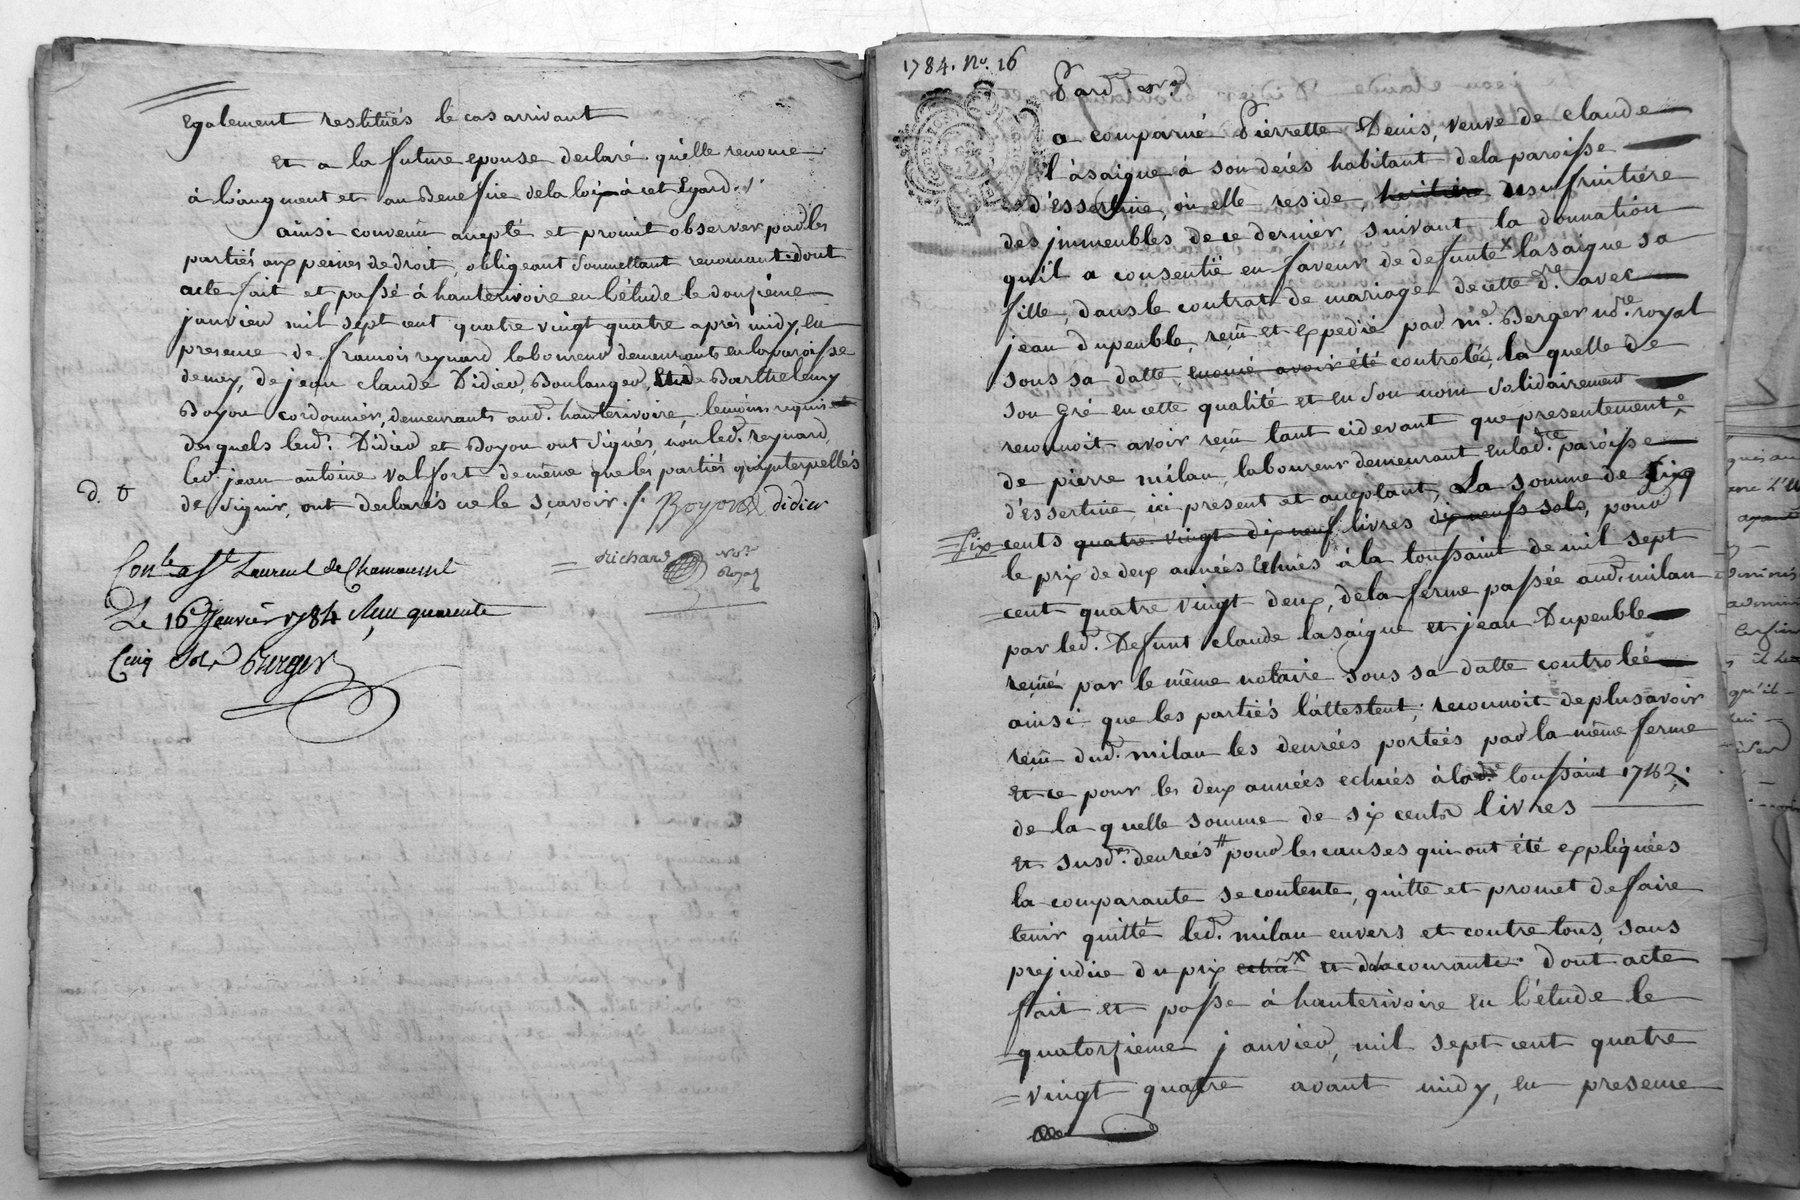 Egalement restitués le cas arrivant
Et a la future epouse declaré qu'elle renonce
à laugment et au Benefice de la loix à cet Egard
ainsi convenû accepté et promit observer par les
partiés aux peines de droit, obligeant soumettant renoncant dont
acte fait et passé à hauterivoire en l'étude le douzième
janvier mil sept cent quatre vingt quatre après midy, en
presence de francois reynard laboureur demeurants en la paroisse
de mey, de jean claude Didier, Boulanger, et de Barthelemy
Boyou cordonnier, demeurants aud. hauterivoire, temoins requis
desquels led. Didier et Boyou ont signés, non led. reynard,
led. jean antoine valfort de même que les partiés qu'ynterpellés
de signer, ont declarés ne le sçavoir ./. Boyou didier
d. t
Richard Nore Royal
Conle a St Laurent de Chamousset
Le 16 Janvier 1784 Recu quarente
Cinq Sols Berger
1784. No. 16
Pardt
a comparué Pierrette Denis, veuve de claude
lasaigue à son decés habitant de la paroisse
d'éssertine, où elle reside, usufruitiére
des jmmeubles de ce dernier suivant la donnation
qu'il a consentïe en faveur de defunte x lasaigue sa
fille, dans le contrat de mariage de cette dre. avec
jean dupeuble, reçu et expedié par me. Berger nore. royal
sous sa datte, enoncé avoir été controlée, la quelle de
son gré en cette qualité et en son nom solidairement
reconnoit avoir reçu tant cidevant que presentement,
de pierre milan, laboureur demeurant en lad. paroisse
d'éssertine, ici present et acceptant, La somme de cinq
six cents quatre vingt dix neuf livres dix neufs sols, pour
le prix de deux années echües à la toussaint de mil sept
cent quatre vingt deux, de la ferme passée aud. milan
par led. Defunt claude lasaigue et jean Dupeuble
reçue par le même notaire sous sa datte controlée
ainsi que les partiés l'attestent; reconnoit de plus avoir
reçu dud. milan les denrées porteés par la même ferme
et ce pour les deux années echües à lad. toussaint 1782.
de la quelle somme de six cents livres
et susd. denreés # pour les causes qui ont été expliquées
la comparante se contente, quitte et promet de faire
tenir quitte led. milan envers et contre tous, sans
prejudice du prix echû x et de la courante. Dont acte
fait et passé à hauterivoire en l'étude le
quatorzieme janvier, mil sept cent quatre
vingt quatre avant midy, en presence